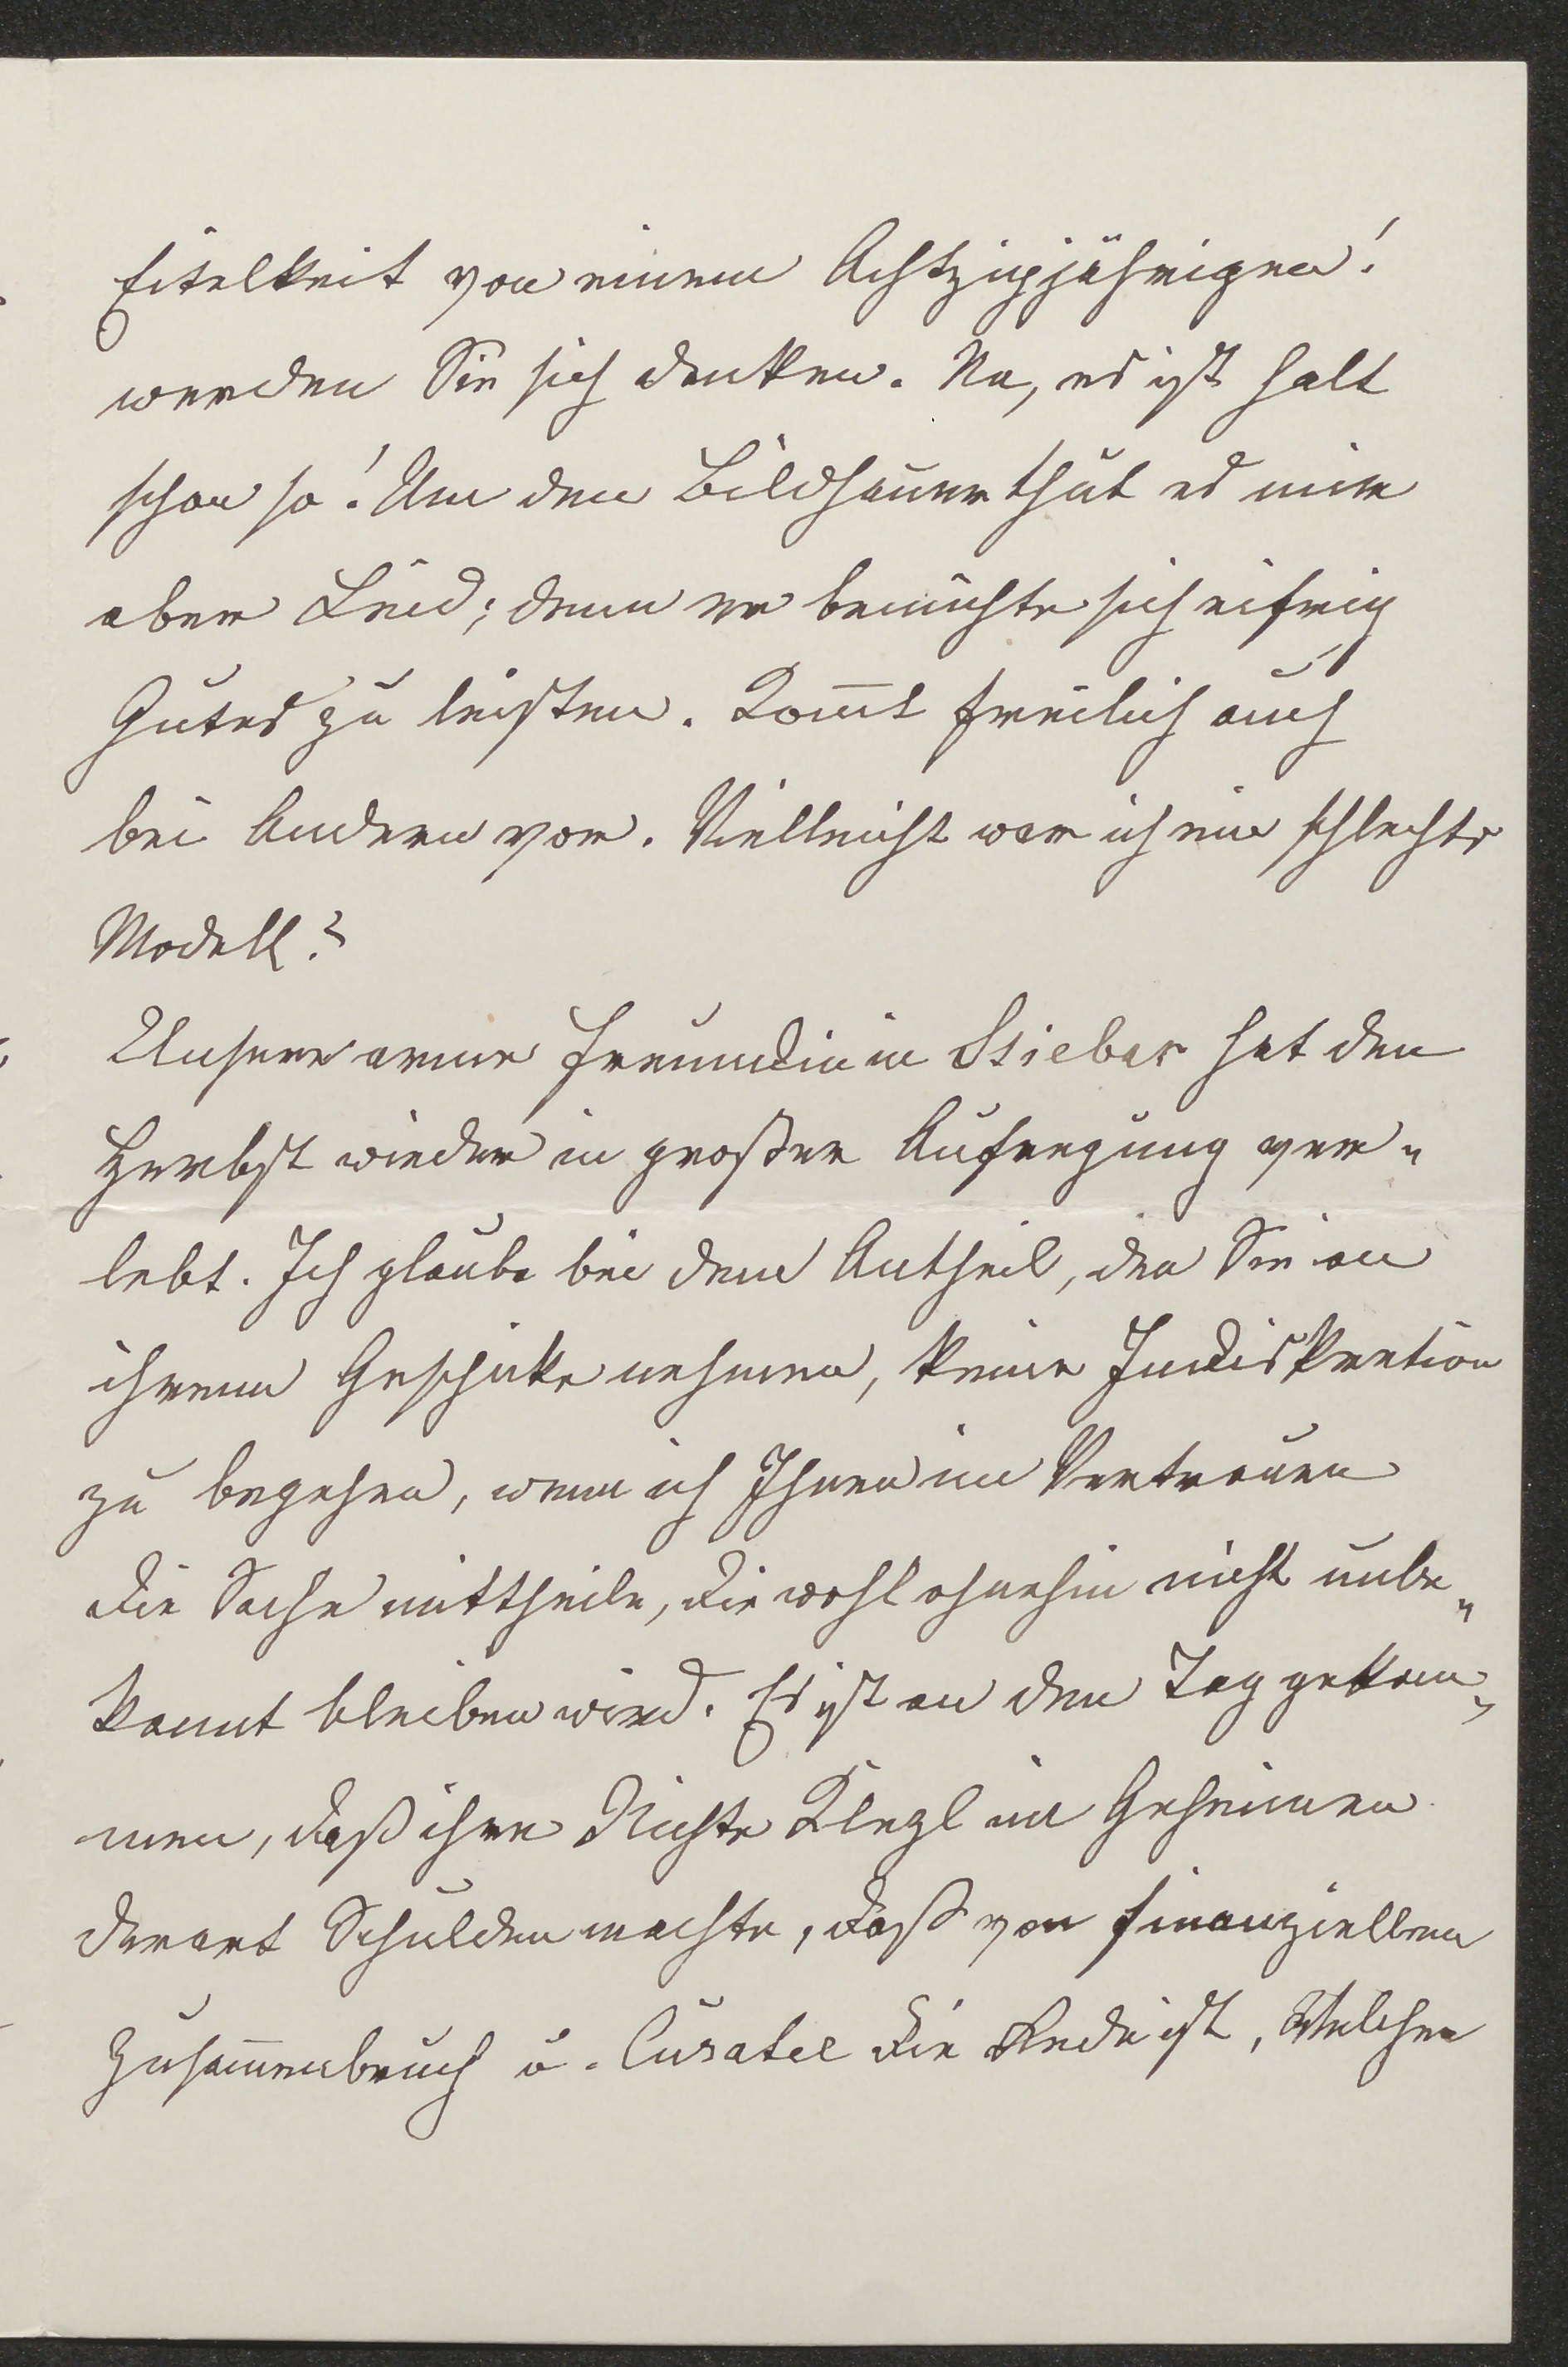 Eitelkeit von einem Achtzigjährigen!
werden Sie sich denken. Na, es ist halt
schon so! Um den Bildhauer thut es mir
aber Leid; denn er bemühte sich eifrig
Gutes zu leisten. Kom̄t freilich auch
bei Andern vor. Vielleicht war ich ein schlechtes
Modell?
Unsere arme Freundinin Stiebar hat den
Herbst wieder in großer Aufregung ver„
lebt. Ich glaube bei dem Antheil, den Sie an
ihrem Geschicke nehmen, keine Indiskretion
zu begehen, wenn ich Ihnen im Vertrauen
die Sache mittheile, die wohl ohnehin nicht unbe„
kannt bleiben wird. Es ist an den Tag gekom„
men, daß ihre Nichte Klezl im Geheimen
derart Schulden machte, daß von finanziellem
Zusam̄enbruch u. Curatel die Rede ist, Welchen